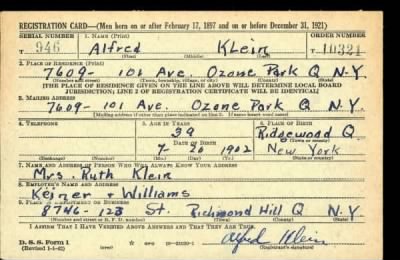 REGISTRATION CARD—(Men born on or after February 17, 1897 and on or before December 31, 1921)
SERIAL NUMBER 1. NAME (Print) ORDER NUMBER
T 946 Alfred Klein T 10321
(First) (Middle) (Last)
2. PLACE OF RESIDENCE (Print)
7609- 101 Ave. Ozone Park Q N.Y.
(Number and street) (Town, township, village, or city) (County) (State)
[THE PLACE OF RESIDENCE GIVEN ON THE LINE ABOVE WILL DETERMINE LOCAL BOARD
JURISDICTION; LINE 2 OF REGISTRATION CERTIFICATE WILL BE IDENTICAL]
3. MAILING ADDRESS
7609- 101 Ave. Ozone Park Q N.Y.
[Mailing address if other than place indicated on line 2. If same, insert word same]
4. TELEPHONE 5. AGE IN YEARS 6. PLACE OF BIRTH
39 Ridgewood Q
DATE OF BIRTH (Town or county)
7 20 1902 New York
(Exchange) (Number) (Mo.) (Day) (Yr.) (State or country)
7. NAME AND ADDRESS OF PERSON WHO WILL ALWAYS KNOW YOUR ADDRESS
Mrs. Ruth Klein
8. EMPLOYER'S NAME AND ADDRESS
Keiner + Williams
9. PLACE OF EMPLOYMENT OR BUSINESS
8746-123 St. Richmond Hill Q N.Y.
(Number and street or R. F. D. number) (Town) (County) (State)
I AFFIRM THAT I HAVE VERIFIED ABOVE ANSWERS AND THAT THEY ARE TRUE.
D. S. S. Form 1
(Revised 1-1-42) (over) Alfred Klein
(Registrant's signature)